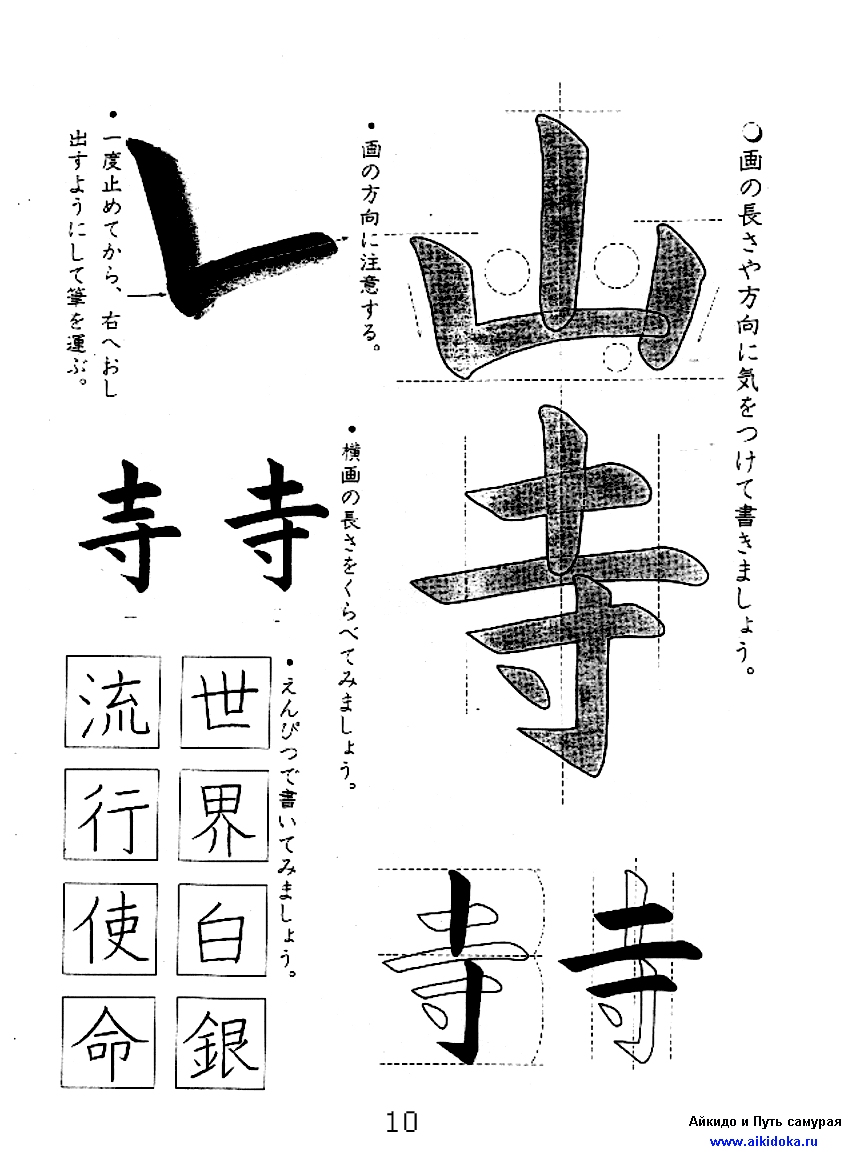 ○画の長さや方向に気をつけて書きましょう。
山
寺
・画の方向に注意する。
・一度止めてから、右へおし
出すようにして筆を運ぶ。
・横画の長さをくらべてみましょう。
寺
寺
寺
寺
・えんぴつで書いてみましょう。
世界白銀
流行使命
10
Айкидо и Путь самурая
www.aikidoka.ru